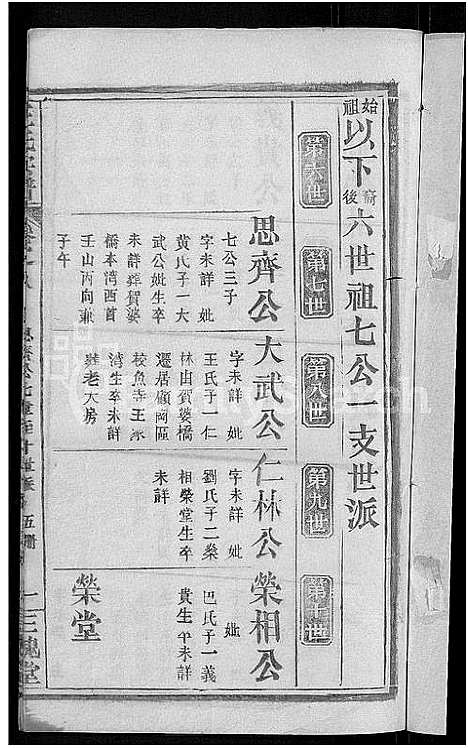 始祖以下裔後六世祖七公一支世派
第六世
第七世
第八世
第九世
第十世
思齊公
七公三子
字未詳妣
黃氏子一大
武公妣生卒
未詳葬賀婆
橋本湾西首
壬山丙向兼
子午
大武公
字未詳妣
王氏子一仁
林山賀婆橋
遷居顧岡區
校魚寺王家
湾生卒未詳
葬老大房
仁林公
字未詳妣
劉氏子二榮
相榮堂生卒
未詳
榮相公
妣
巴氏子一義
貴生卒未詳
榮堂
三槐堂